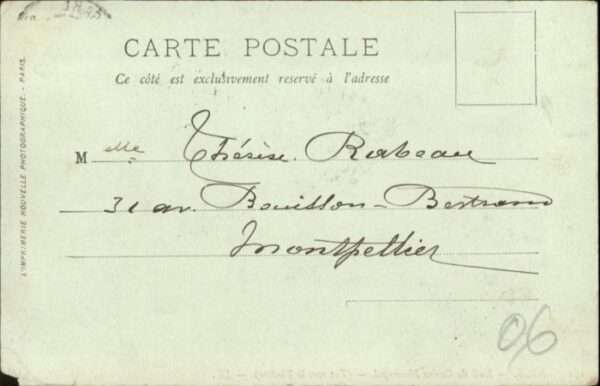 CARTE POSTALE
Ce côté est exclusivement reservé à l'adresse
L'IMPRIMERIE NOUVELLE PHOTOGRAPHIQUE - PARIS
Melle Thérèse Rabeau
31 av. Bouisson-Bertrand
Montpellier
06